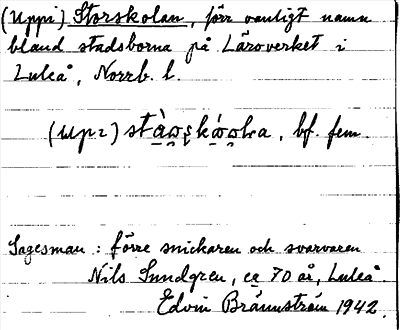 (Uppi) Storskolan, förr vanligt namn
bland stadsborna på Läroverket i
Luleå, Norrb. l.
(Upz) bf. fem.
Sagesman: förre snickaren och svarvaren
Nils Sundgren, ca 70 år, Luleå.
Edvin Brännström 1942.